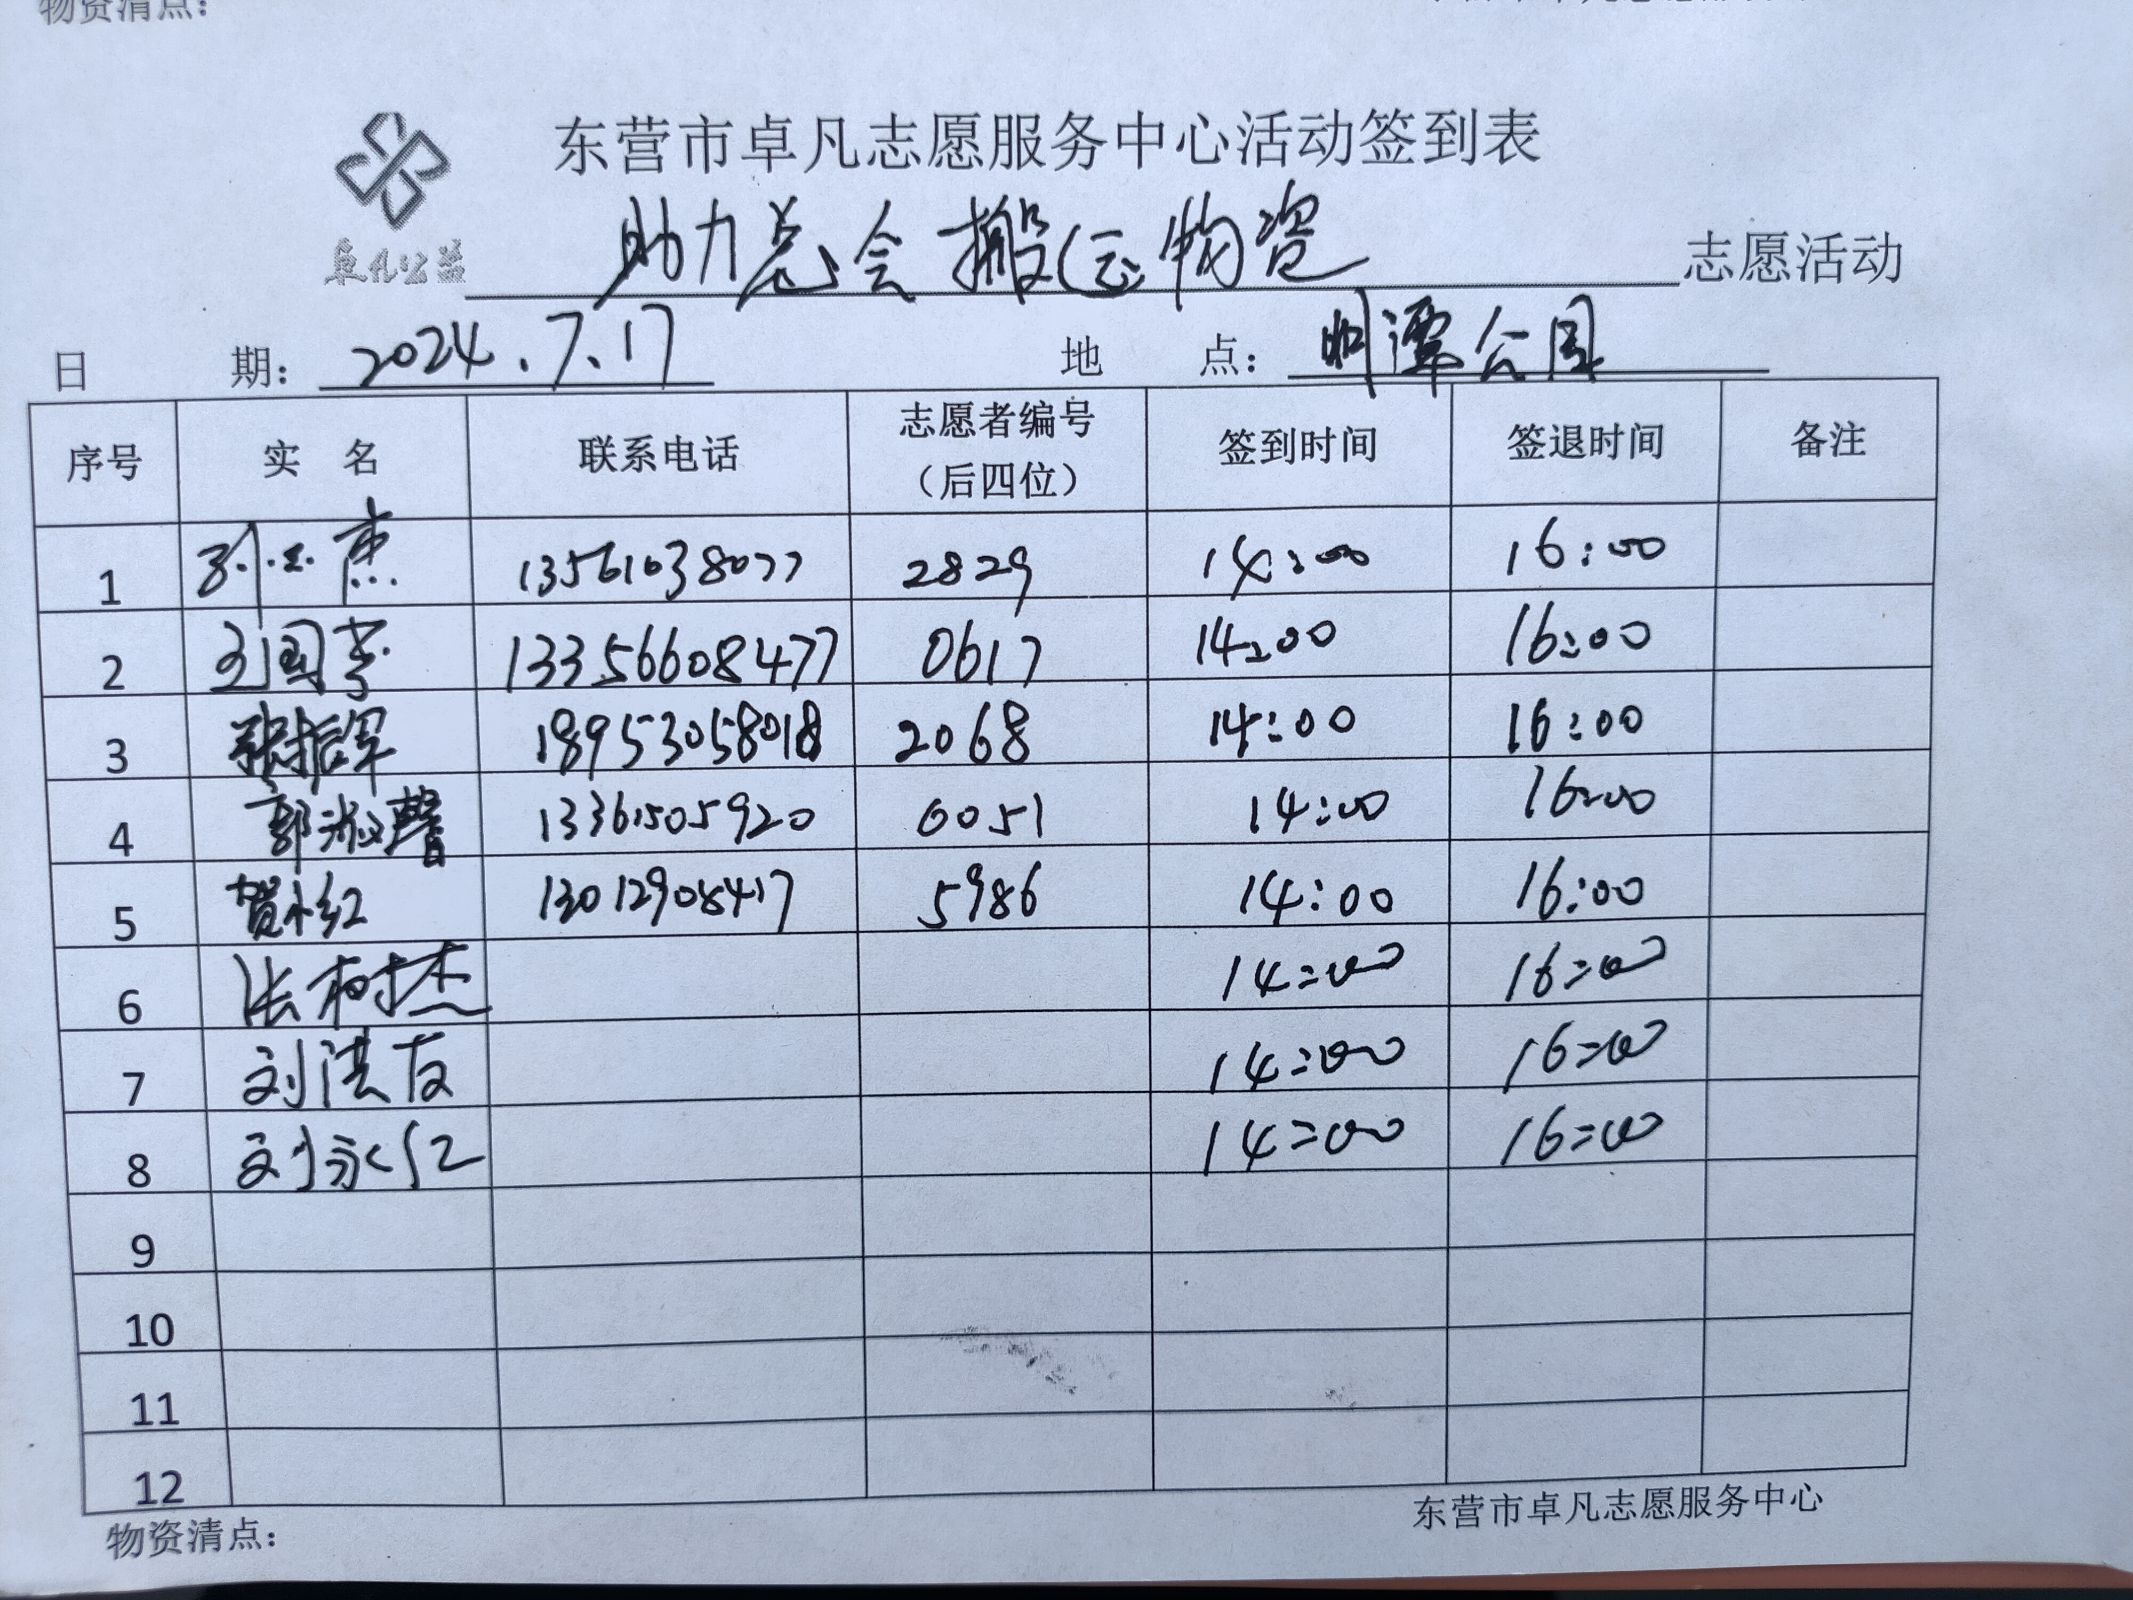 物资清点：
东营市卓凡志愿服务中心活动签到表
卓凡公益
助力总会搬运物资 志愿活动
日 期： 2024.7.17 地 点： 明潭公园
序号 实 名 联系电话 志愿者编号（后四位） 签到时间 签退时间 备注
1 13561038077 2829 14:00 16:00
2 13356608477 0617 14:00 16:00
3 张振军 18953058018 2068 14:00 16:00
4 郭淑馨 13361505920 0051 14:00 16:00
5 贺小红 13012908417 5986 14:00 16:00
6 张树杰 14:00 16:00
7 刘洪友 14:00 16:00
8 刘永红 14:00 16:00
9
10
11
12
物资清点： 东营市卓凡志愿服务中心